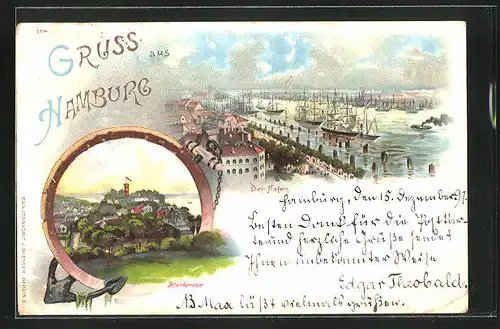 264
GRUSS aus
HAMBURG
Der Hafen
Blankenese
Hamburg, den 15. Dezember 97.
Besten Dank für die Postkar-
te und herzliche Grüße sendet
Ihnen unbekannter Weise
Edgar Theobald.
NB Max läßt vielmals grüßen.